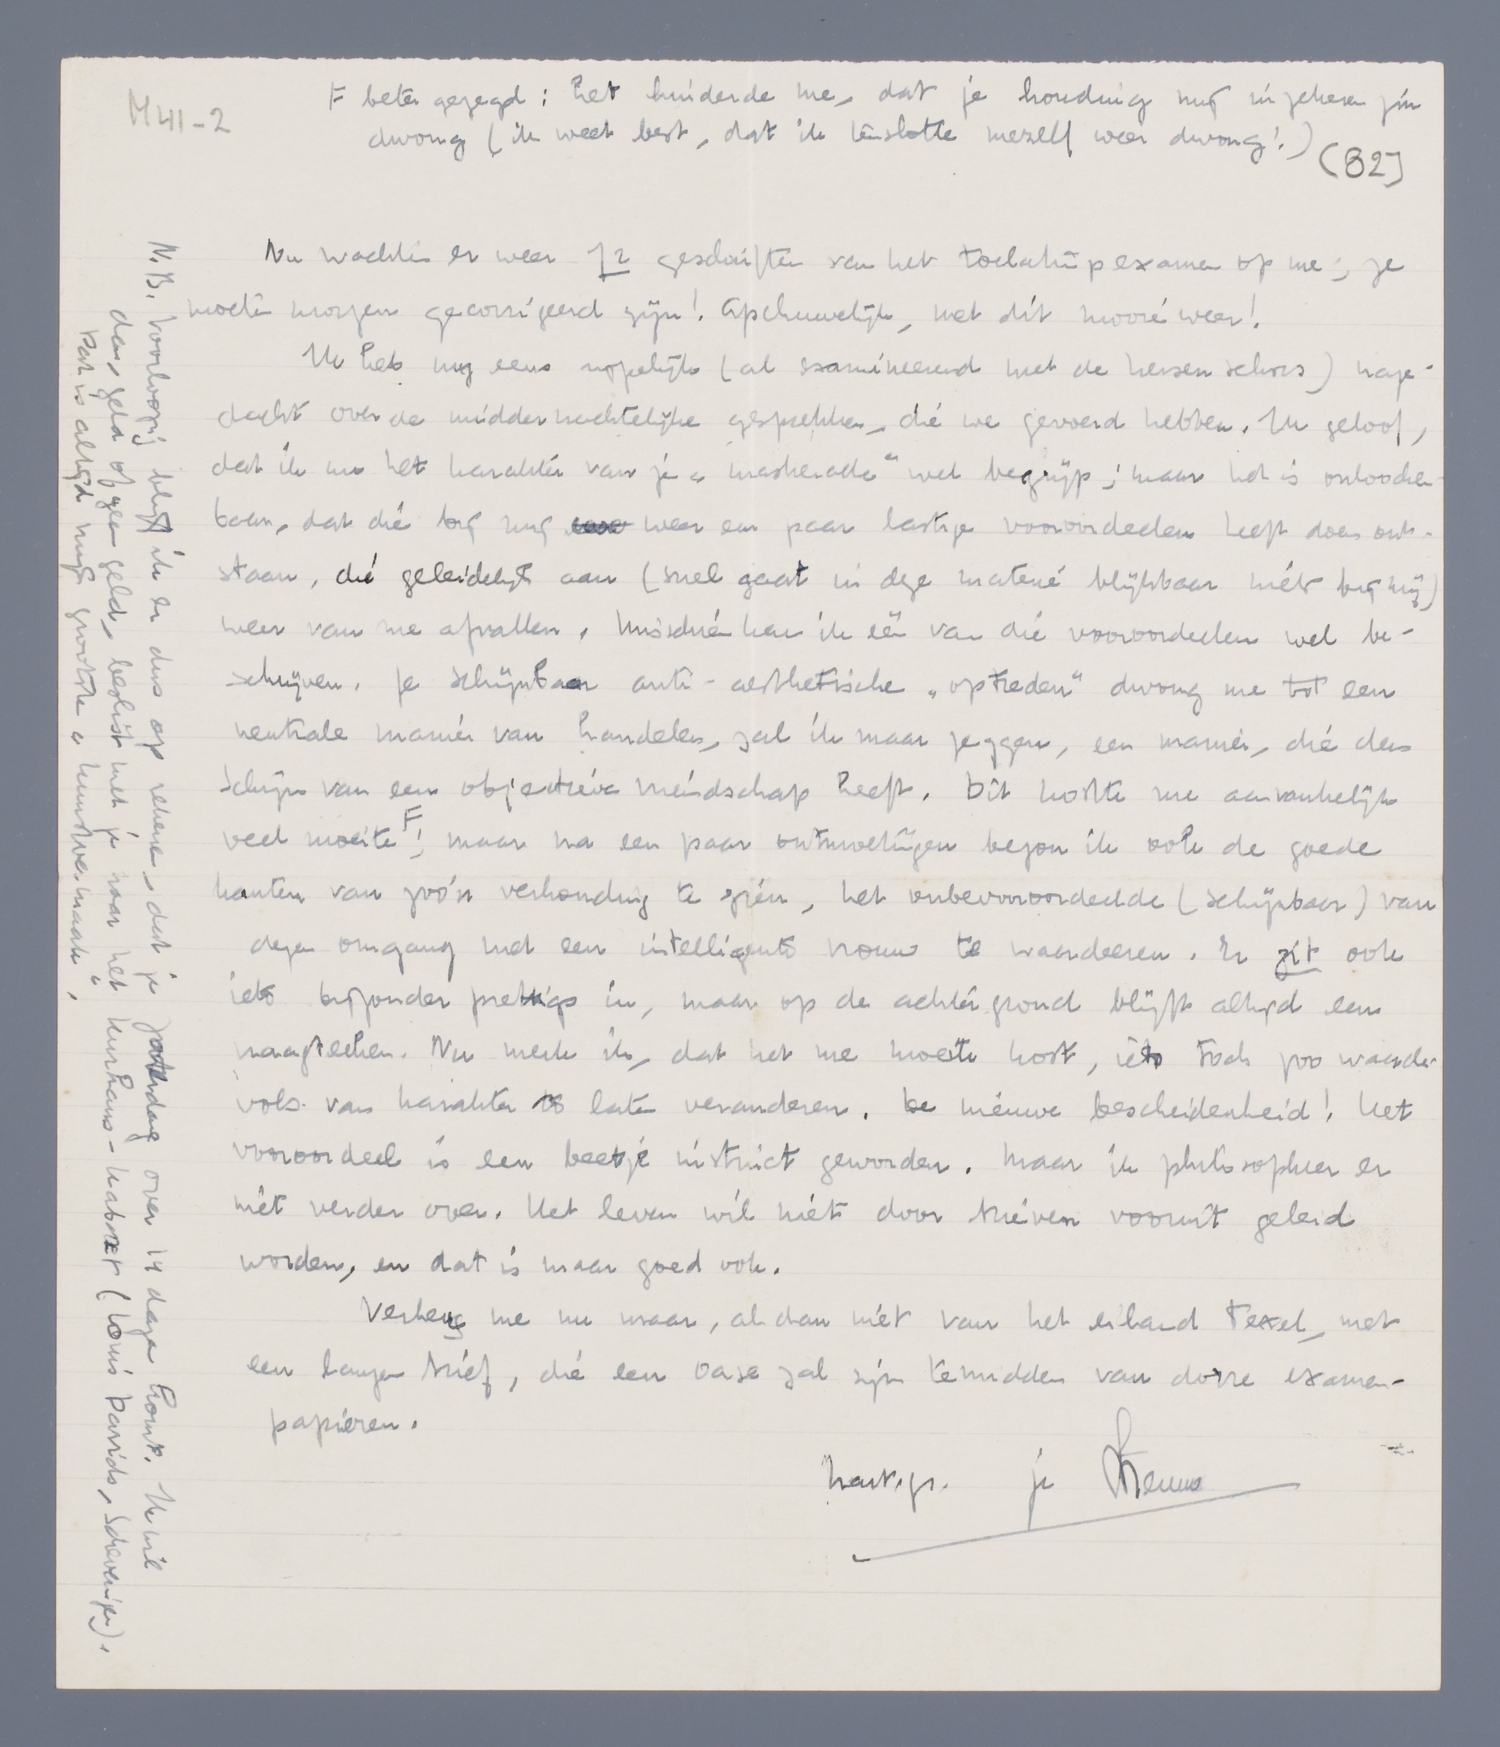 M41-2
F beter gezegd: het hinderde me, dat je houding mij in zekere zin
dwong (ik weet best, dat ik tenslotte mezelf weer dwong!)
(B2)
Nu wachten er weer 72 geschriften van het toelatingsexamen op me; ze
moeten morgen gecorrigeerd zijn! Afschuwelijk, met dit mooie weer!
Ik heb nog eens moppelijk (al examineerend met de hersenschors) nage-
dacht over de middernachtelijke gesprekken, die we gevoerd hebben. Ik geloof,
dat ik nu het karakter van je „maskerade" wel begrijp; maar het is onlooche-
baar, dat die bij mij weer een paar lastige vooroordeelen heeft doen ont-
staan, die geleidelijk aan (snel gaat in deze materie blijkbaar niets bij mij)
weer van me afvallen. Misschien kan ik één van die vooroordeelen wel be-
schrijven. Je schijnbaar anti-aesthetische „optreden" dwong me tot een
neutrale manier van handelen, zal ik maar zeggen, een manier, die den
schijn van een objectieve vriendschap heeft. Dit kostte me aanvankelijk
veel moeite F; maar na een paar ontmoetingen begon ik ook de goede
kanten van zoo'n verhouding te zien, het onbevooroordeelde (schijnbaar) van
dezen omgang met een intelligente vrouw te waardeeren. Er zit ook
iets bijzonder prettigs in, maar op den achtergrond blijft altijd een
vraagteeken. Nu merk ik, dat het me moeite kost, iets toch zoo waarde-
vols van karakter te laten veranderen. De nieuwe bescheidenheid! Het
vooroordeel is een beetje instinct geworden. Maar ik philosopheer er
niet verder over. Het leven wil niet door brieven vooruit geleid
worden, en dat is maar goed ook.
Verheug me nu maar, al dan niet van het eiland Texel, met
een langen brief, die een oase zal zijn temidden van dorre examen-
papieren.
hart. gr. je Menno
N.B. Voorloopig blijf ik er dus op rekenen, dat je Zaterdag over 14 dagen komt. Ik wil
dan, geld of geen geld, beslist met je naar het Kurhaus-Kabaret (Louis Davids, Scheveningen).
Dat is altijd mijn grootste „kunstvermaak",